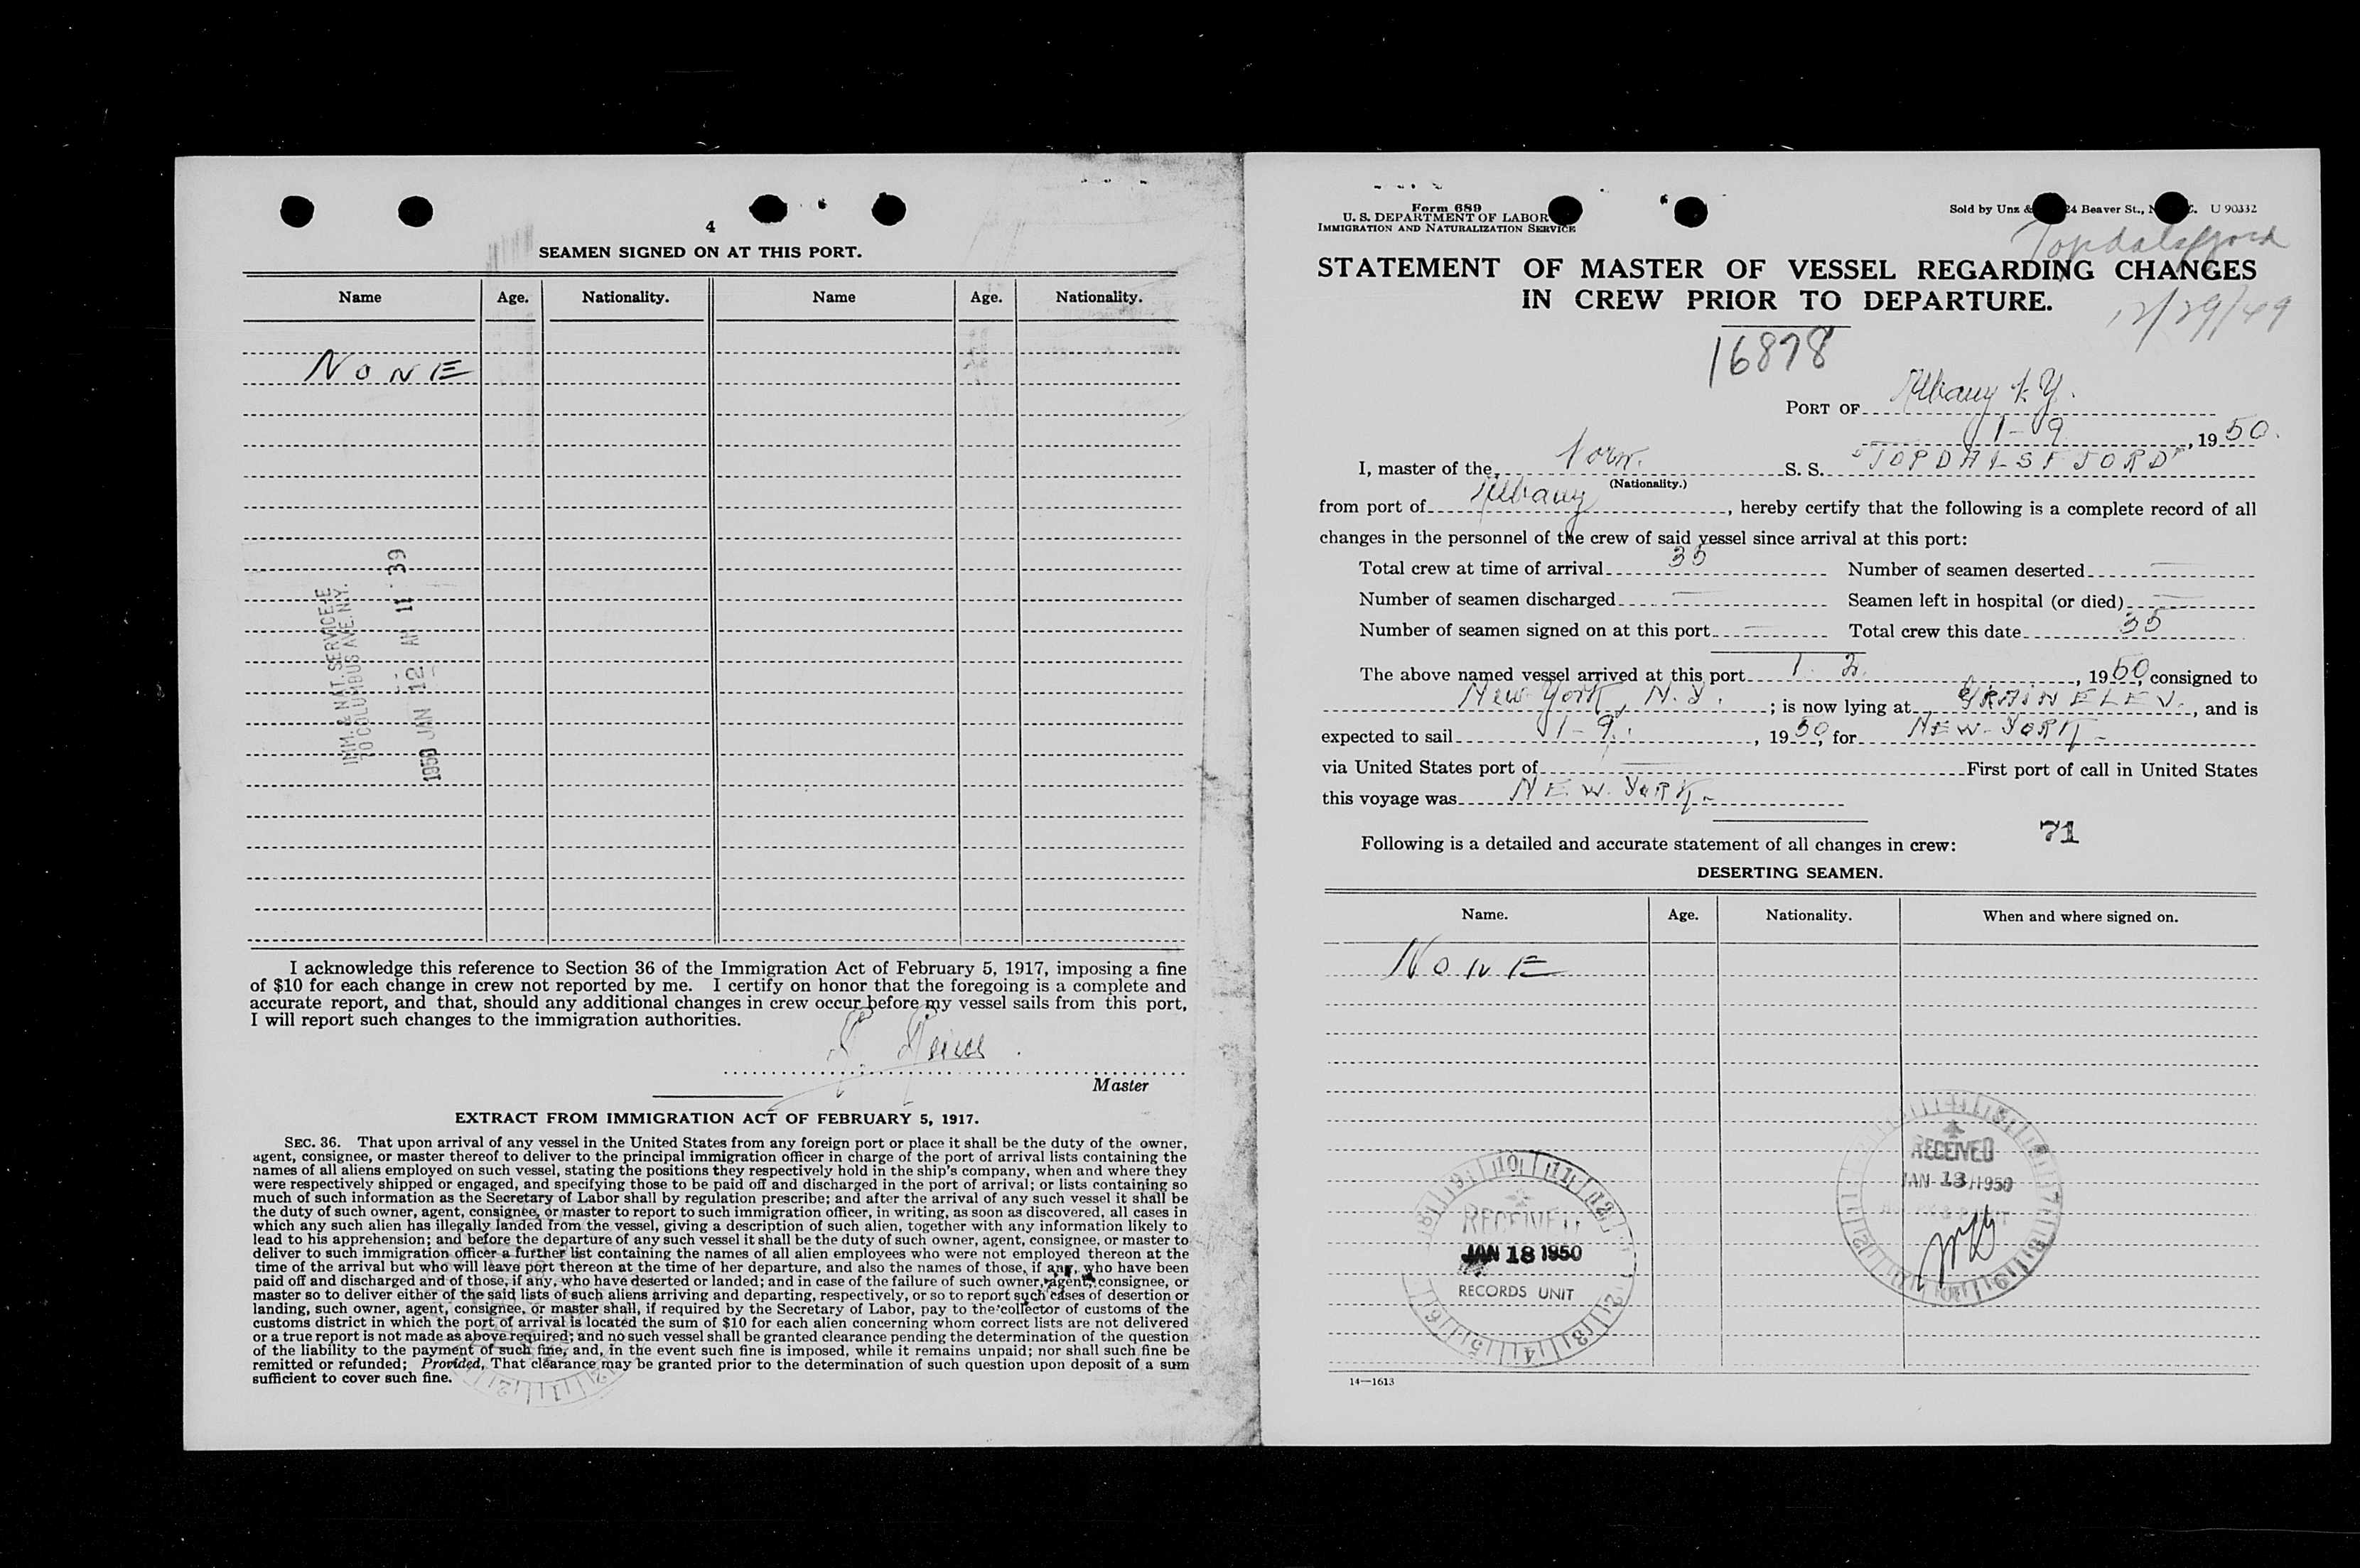 4
SEAMEN SIGNED ON AT THIS PORT.
Name Age. Nationality. Name Age. Nationality.
NONE
IMM. & NAT. SERVICE
70 COLUMBUS AVE. N.Y.
1950 JAN 12 AM 11 39
I acknowledge this reference to Section 36 of the Immigration Act of February 5, 1917, imposing a fine
of $10 for each change in crew not reported by me. I certify on honor that the foregoing is a complete and
accurate report, and that, should any additional changes in crew occur before my vessel sails from this port,
I will report such changes to the immigration authorities.
Master
EXTRACT FROM IMMIGRATION ACT OF FEBRUARY 5, 1917.
SEC. 36. That upon arrival of any vessel in the United States from any foreign port or place it shall be the duty of the owner,
agent, consignee, or master thereof to deliver to the principal immigration officer in charge of the port of arrival lists containing the
names of all aliens employed on such vessel, stating the positions they respectively hold in the ship's company, when and where they
were respectively shipped or engaged, and specifying those to be paid off and discharged in the port of arrival; or lists containing so
much of such information as the Secretary of Labor shall by regulation prescribe; and after the arrival of any such vessel it shall be
the duty of such owner, agent, consignee, or master to report to such immigration officer, in writing, as soon as discovered, all cases in
which any such alien has illegally landed from the vessel, giving a description of such alien, together with any information likely to
lead to his apprehension; and before the departure of any such vessel it shall be the duty of such owner, agent, consignee, or master to
deliver to such immigration officer a further list containing the names of all alien employees who were not employed thereon at the
time of the arrival but who will leave port thereon at the time of her departure, and also the names of those, if any, who have been
paid off and discharged and of those, if any, who have deserted or landed; and in case of the failure of such owner, agent, consignee, or
master so to deliver either of the said lists of such aliens arriving and departing, respectively, or so to report such cases of desertion or
landing, such owner, agent, consignee, or master shall, if required by the Secretary of Labor, pay to the collector of customs of the
customs district in which the port of arrival is located the sum of $10 for each alien concerning whom correct lists are not delivered
or a true report is not made as above required; and no such vessel shall be granted clearance pending the determination of the question
of the liability to the payment of such fine, and, in the event such fine is imposed, while it remains unpaid; nor shall such fine be
remitted or refunded; Provided, That clearance may be granted prior to the determination of such question upon deposit of a sum
sufficient to cover such fine.
Form 689
U. S. DEPARTMENT OF LABOR
IMMIGRATION AND NATURALIZATION SERVICE
Sold by Unz & 24 Beaver St., U 90332
Topdalsfjord
STATEMENT OF MASTER OF VESSEL REGARDING CHANGES
IN CREW PRIOR TO DEPARTURE.
12/29/49
16878
PORT OF Albany N.Y.
1-9, 1950.
I, master of the Norw. S. S. "TOPDALSFJORD"
(Nationality.)
from port of Albany, hereby certify that the following is a complete record of all
changes in the personnel of the crew of said vessel since arrival at this port:
Total crew at time of arrival 35 Number of seamen deserted —
Number of seamen discharged — Seamen left in hospital (or died) —
Number of seamen signed on at this port — Total crew this date 35
The above named vessel arrived at this port 1. 2., 1950, consigned to
New York, N.Y.; is now lying at GRAIN ELEV., and is
expected to sail 1-9., 1950, for NEW-YORK-
via United States port of — First port of call in United States
this voyage was NEW YORK-
71
Following is a detailed and accurate statement of all changes in crew:
DESERTING SEAMEN.
Name. Age. Nationality. When and where signed on.
NONE
RECEIVED
JAN 13 1950
RECEIVED
JAN 18 1950
RECORDS UNIT
14—1613